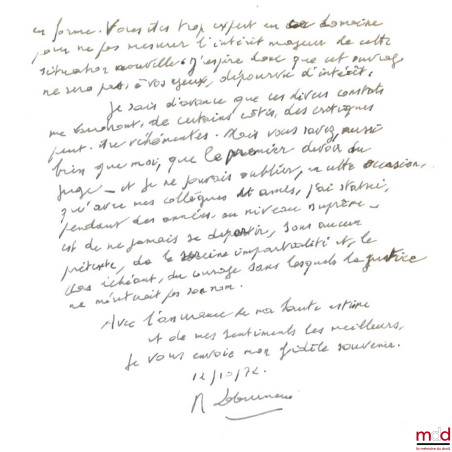 en forme. Vous êtes trop expert en ce domaine
pour ne pas mesurer l'intérêt majeur de cette
situation nouvelle. J'espère donc que cet ouvrage
ne sera pas, à vos yeux, dépourvu d'intérêt.
Je sais d'avance que ces divers constats
me vaudront, de certains côtés, des critiques
peut-être véhémentes. Mais vous savez, aussi
bien que moi, que le premier devoir du
juge — et je ne pouvais oublier, en cette occasion,
qu'avec mes collègues et amis, j'ai statué,
pendant des années, au niveau suprême —
est de ne jamais se départir, sous aucun
prétexte, de la sereine impartialité et, le
cas échéant, du courage sans lesquels la justice
ne mériterait pas son nom.
Avec l'assurance de ma haute estime
et de mes sentiments les meilleurs,
je vous envoie mon fidèle souvenir.
12/10/72.
R
mdd
la mémoire du droit